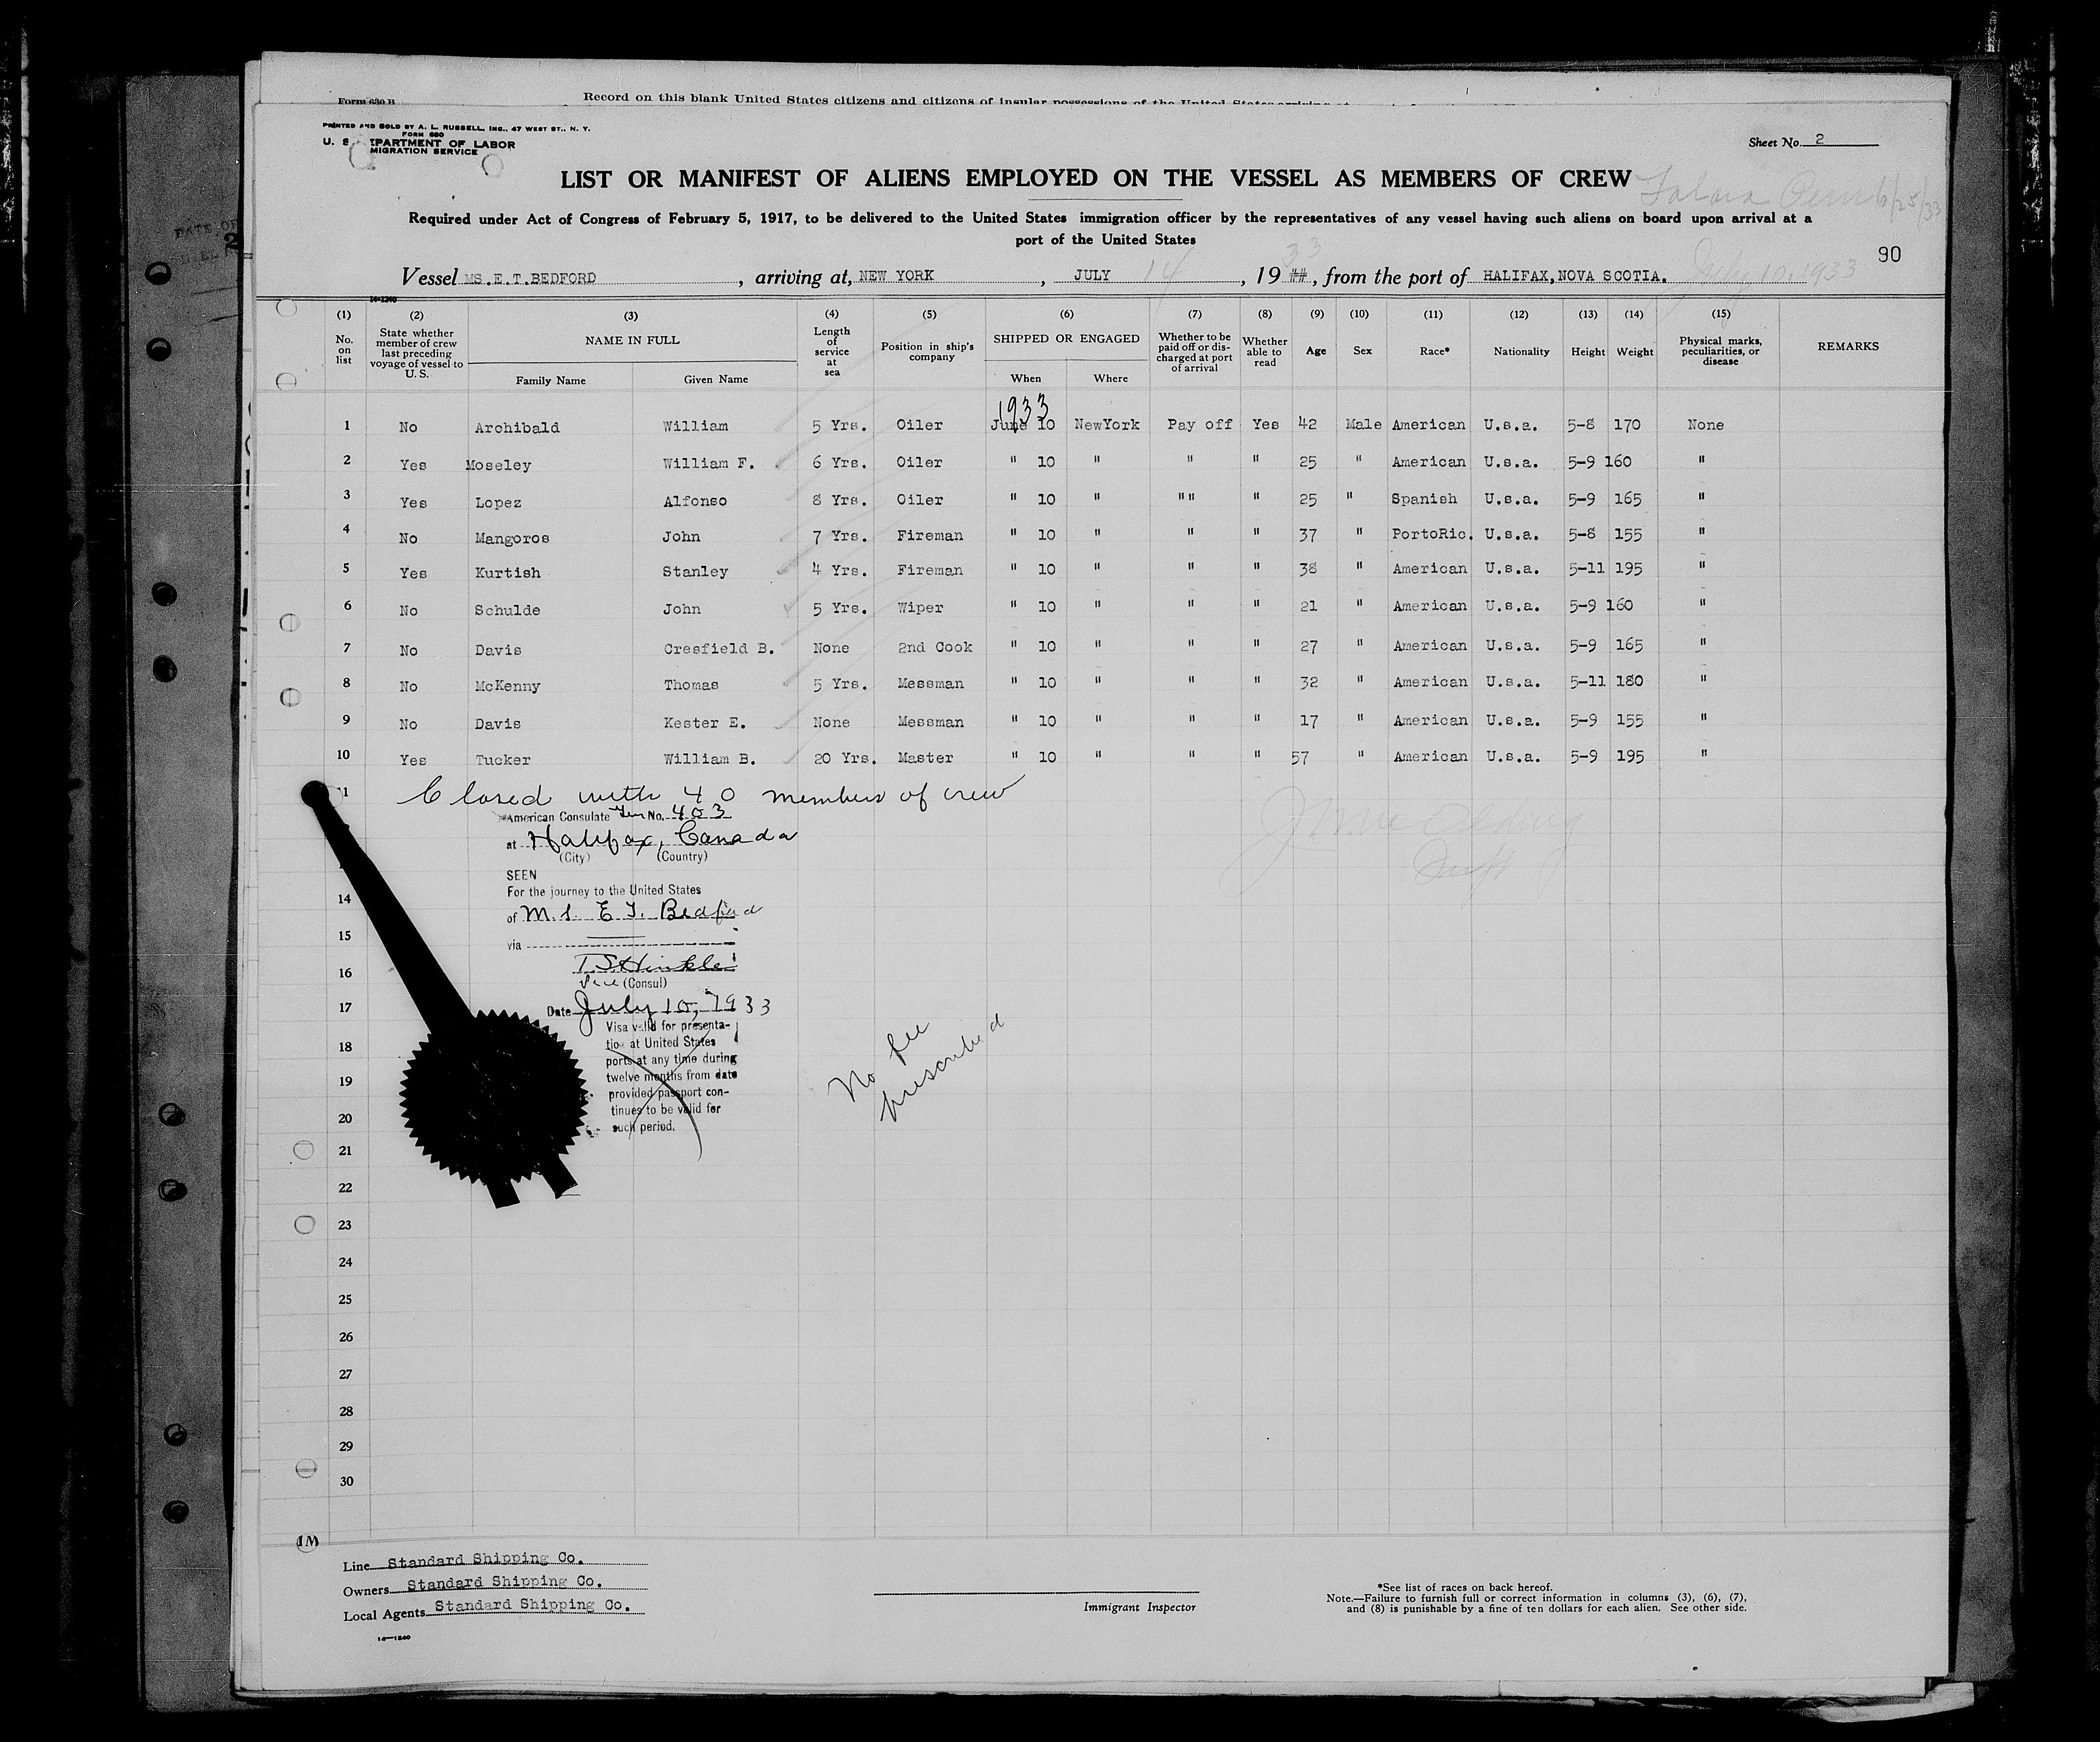 Form 630 B
Record on this blank United States citizens and citizens of insular possessions of the United States arriving at
PRINTED AND SOLD BY A. L. RUSSELL, INC., 47 WEST ST., N. Y.
FORM 680
U. S. DEPARTMENT OF LABOR
IMMIGRATION SERVICE
Sheet No. 2
LIST OR MANIFEST OF ALIENS EMPLOYED ON THE VESSEL AS MEMBERS OF CREW
Talara Peru 6/25/33
Required under Act of Congress of February 5, 1917, to be delivered to the United States immigration officer by the representatives of any vessel having such aliens on board upon arrival at a
port of the United States
90
Vessel MS.E.T.BEDFORD, arriving at, NEW YORK, JULY 14, 19 ## 33, from the port of HALIFAX, NOVA SCOTIA. July 10, 1933
14-1240
(1) (2) (3) (4) (5) (6) (7) (8) (9) (10) (11) (12) (13) (14) (15)
No. on list | State whether member of crew last preceding voyage of vessel to U. S. | NAME IN FULL Family Name Given Name | Length of service at sea | Position in ship's company | SHIPPED OR ENGAGED When Where | Whether to be paid off or discharged at port of arrival | Whether able to read | Age | Sex | Race* | Nationality | Height | Weight | Physical marks, peculiarities, or disease | REMARKS
1933
1 No Archibald William 5 Yrs. Oiler June 10 NewYork Pay off Yes 42 Male American U.s.a. 5-8 170 None
2 Yes Moseley William F. 6 Yrs. Oiler " 10 " " " 25 " American U.s.a. 5-9 160 "
3 Yes Lopez Alfonso 8 Yrs. Oiler " 10 " "" " 25 " Spanish U.s.a. 5-9 165 "
4 No Mangoros John 7 Yrs. Fireman " 10 " " " 37 " PortoRic. U.s.a. 5-8 155 "
5 Yes Kurtish Stanley 4 Yrs. Fireman " 10 " " " 38 " American U.s.a. 5-11 195 "
6 No Schulde John 5 Yrs. Wiper " 10 " " " 21 " American U.s.a. 5-9 160 "
7 No Davis Cresfield B. None 2nd Cook " 10 " " " 27 " American U.s.a. 5-9 165 "
8 No McKenny Thomas 5 Yrs. Messman " 10 " " " 32 " American U.s.a. 5-11 180 "
9 No Davis Kester E. None Messman " 10 " " " 17 " American U.s.a. 5-9 155 "
10 Yes Tucker William B. 20 Yrs. Master " 10 " " " 57 " American U.s.a. 5-9 195 "
11 Closed with 40 members of crew
American Consulate No. 403
at Halifax, Canada
(City) (Country)
SEEN
For the journey to the United States
14
of M.S. E T. Bedford
15
via
16
Vice (Consul)
17
Date July 10, 1933
Visa valid for presenta-
18
tion at United States
ports at any time during
19
twelve months from date
provided passport con-
20
tinues to be valid for
such period.
No fee
prescribed
21
22
23
24
25
26
27
28
29
30
1M
Line Standard Shipping Co.
Owners Standard Shipping Co.
Local Agents Standard Shipping Co.
Immigrant Inspector
*See list of races on back hereof.
Note.—Failure to furnish full or correct information in columns (3), (6), (7),
and (8) is punishable by a fine of ten dollars for each alien. See other side.
14—1240